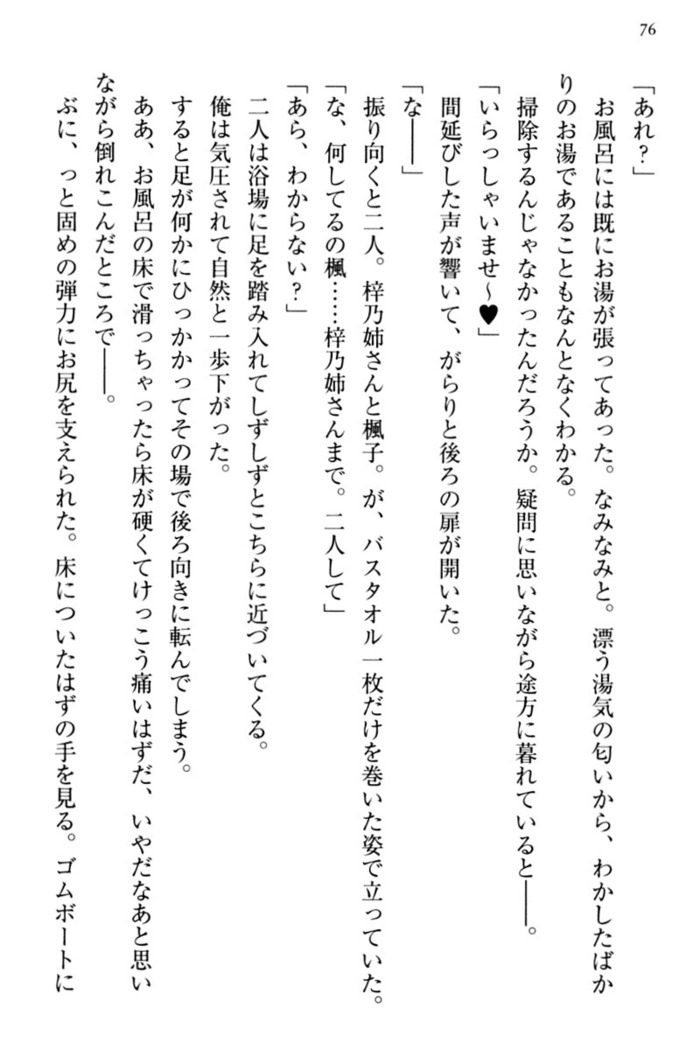 76
「あれ？」
お風呂には既にお湯が張ってあった。なみなみと。漂う湯気の匂いから、わかしたばか
りのお湯であることもなんとなくわかる。
掃除するんじゃなかったんだろうか。疑問に思いながら途方に暮れていると――。
「いらっしゃいませ～♥」
間延びした声が響いて、がらりと後ろの扉が開いた。
「な――」
振り向くと二人。梓乃姉さんと楓子。が、バスタオル一枚だけを巻いた姿で立っていた。
「な、何してるの楓……梓乃姉さんまで。二人して」
「あら、わからない？」
二人は浴場に足を踏み入れてしずしずとこちらに近づいてくる。
俺は気圧されて自然と一歩下がった。
すると足が何かにひっかかってその場で後ろ向きに転んでしまう。
ああ、お風呂の床で滑っちゃったら床が硬くてけっこう痛いはずだ、いやだなあと思い
ながら倒れこんだところで――。
ぶに、っと固めの弾力にお尻を支えられた。床についたはずの手を見る。ゴムボートに